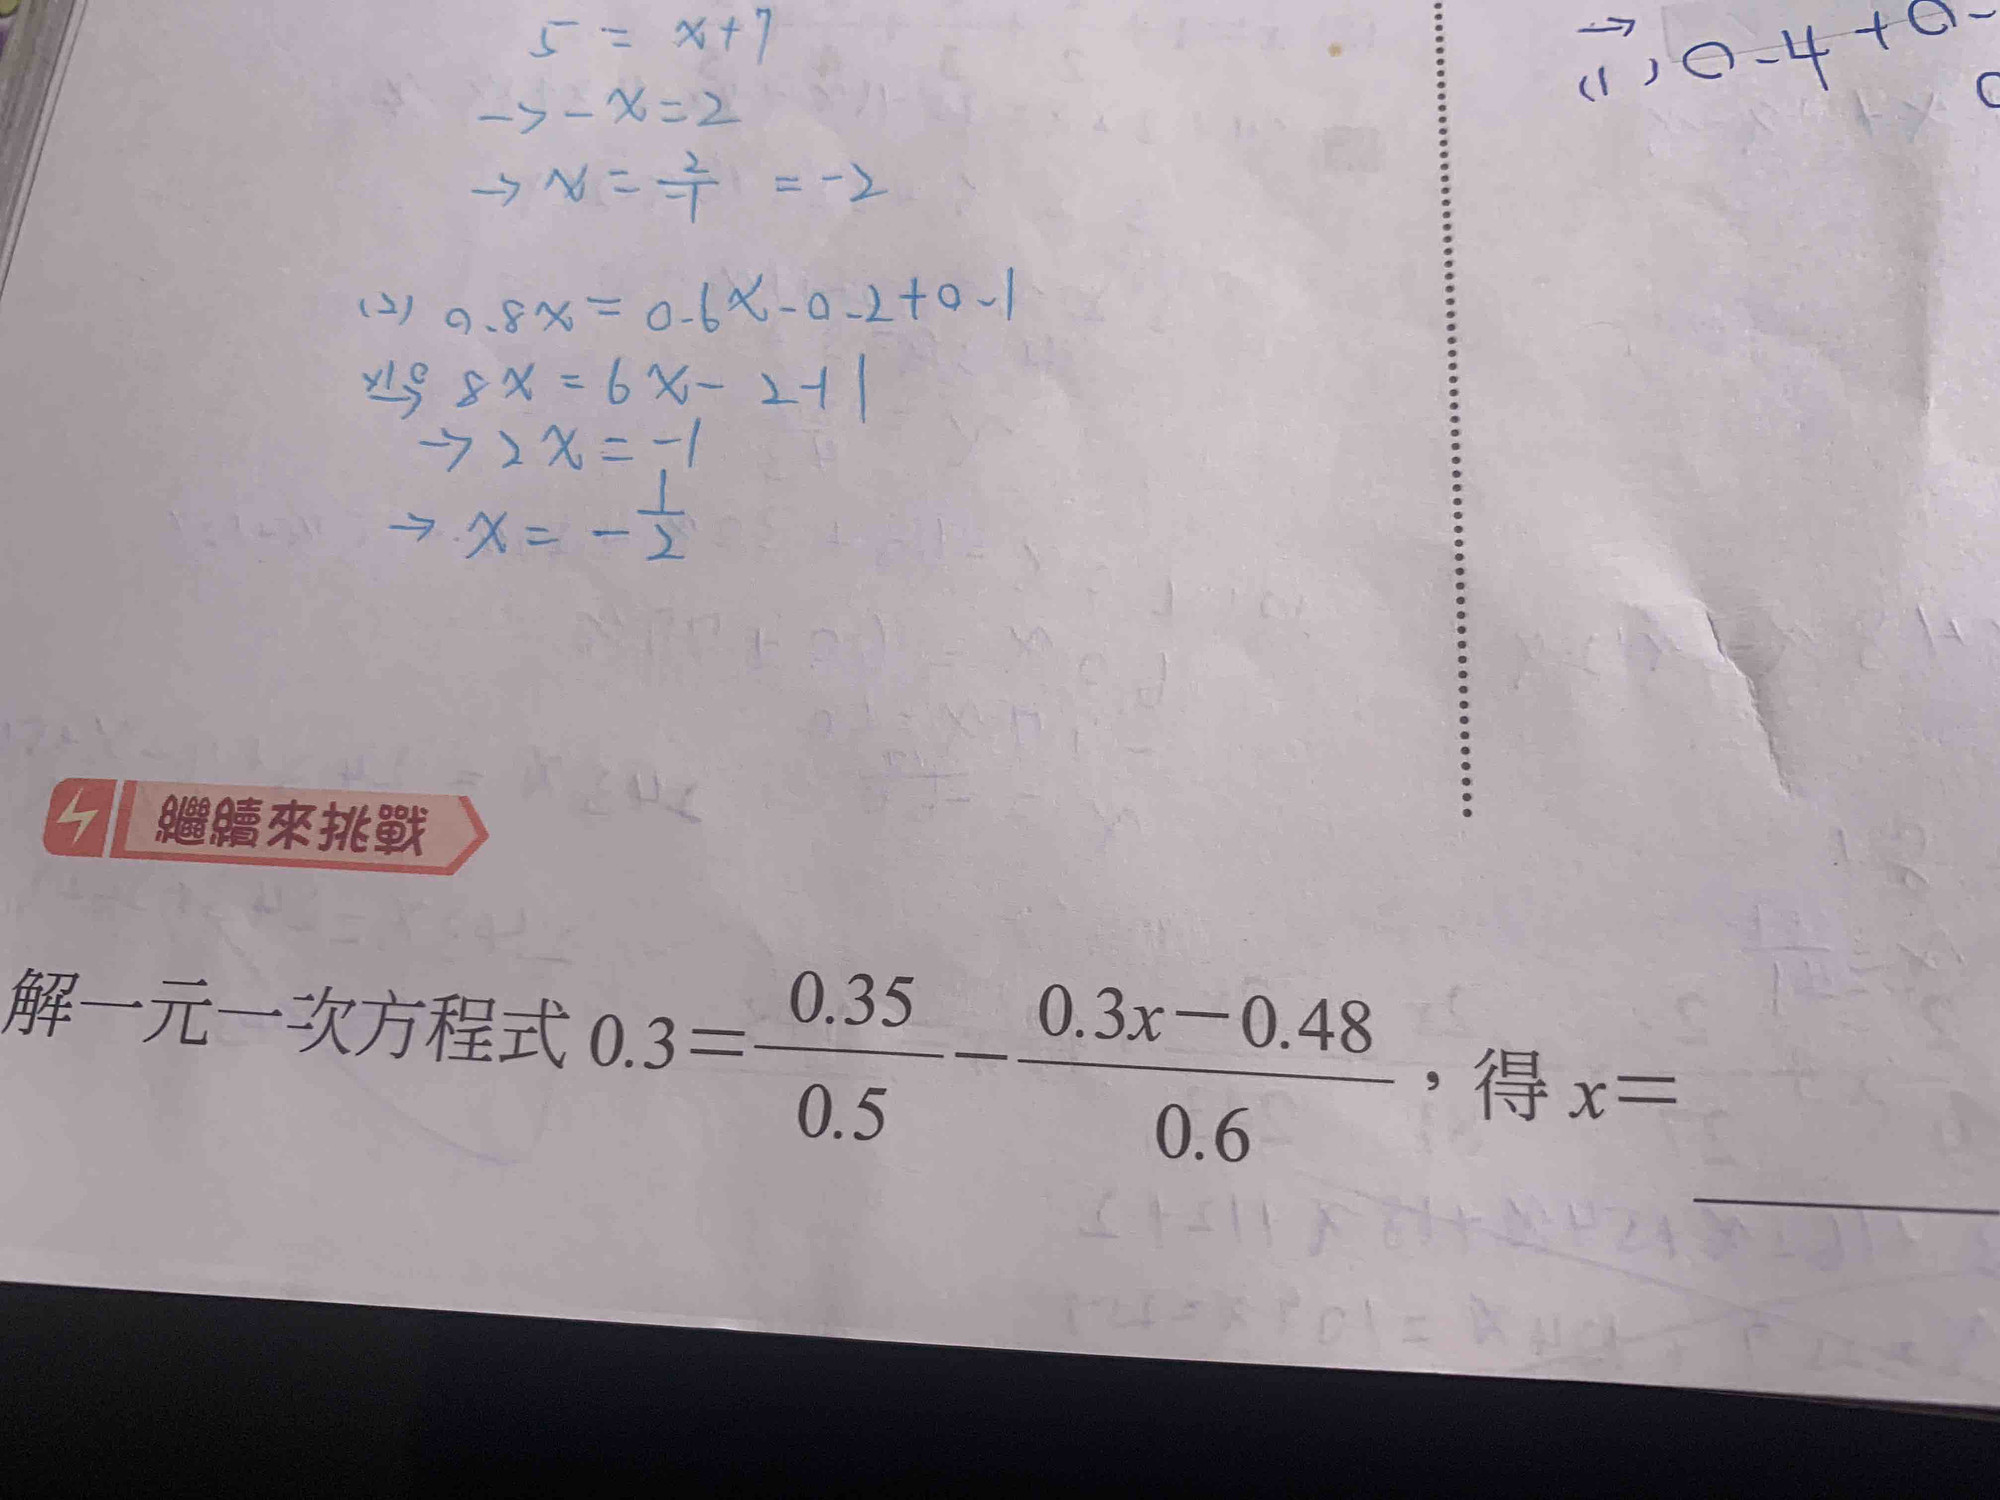 5 = x+7
→ -x=2
→ x = 2/-1 = -2
(2) 0.8x = 0.6x-0.2+0.1
×10→ 8x = 6x-2+1
→ 2x = -1
→ x = -1/2
→
(1) 0.4+0.
繼續來挑戰
解一元一次方程式 0.3=0.35/0.5-0.3x-0.48/0.6,得 x=